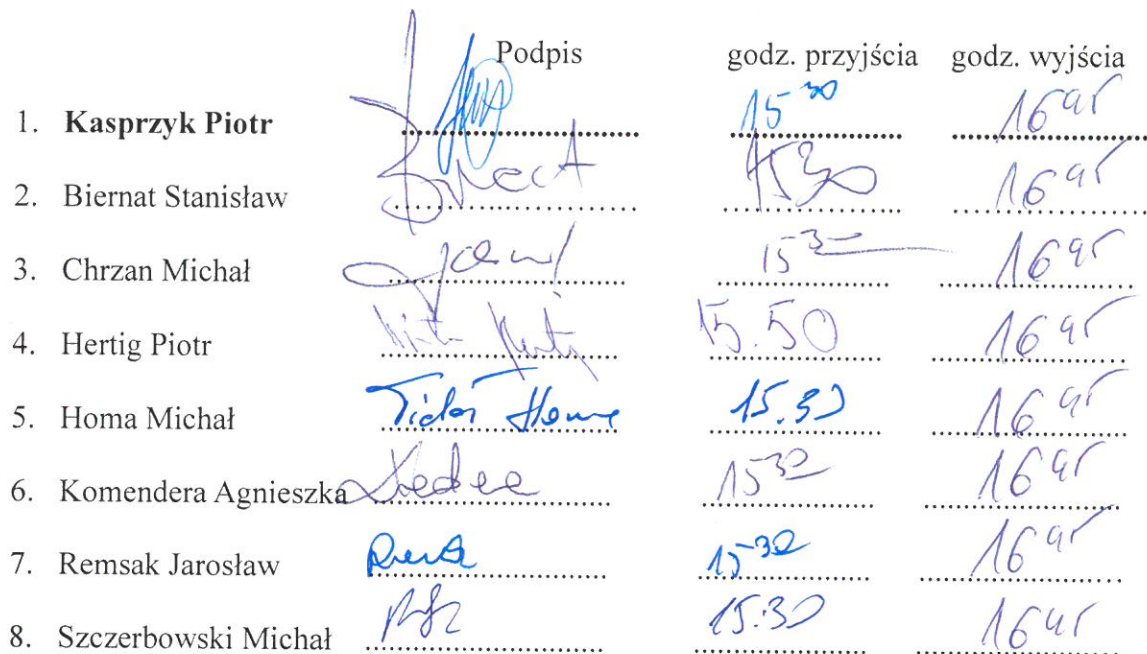 Podpis godz. przyjścia godz. wyjścia
1. Kasprzyk Piotr 15³⁰ 16⁴⁵
2. Biernat Stanisław 15³⁰ 16⁴⁵
3. Chrzan Michał 15³⁰ 16⁴⁵
4. Hertig Piotr 15.50 16⁴⁵
5. Homa Michał Homa 15.30 16⁴⁵
6. Komendera Agnieszka 15³⁰ 16⁴⁵
7. Remsak Jarosław 15³⁰ 16⁴⁵
8. Szczerbowski Michał 15:30 16⁴⁵